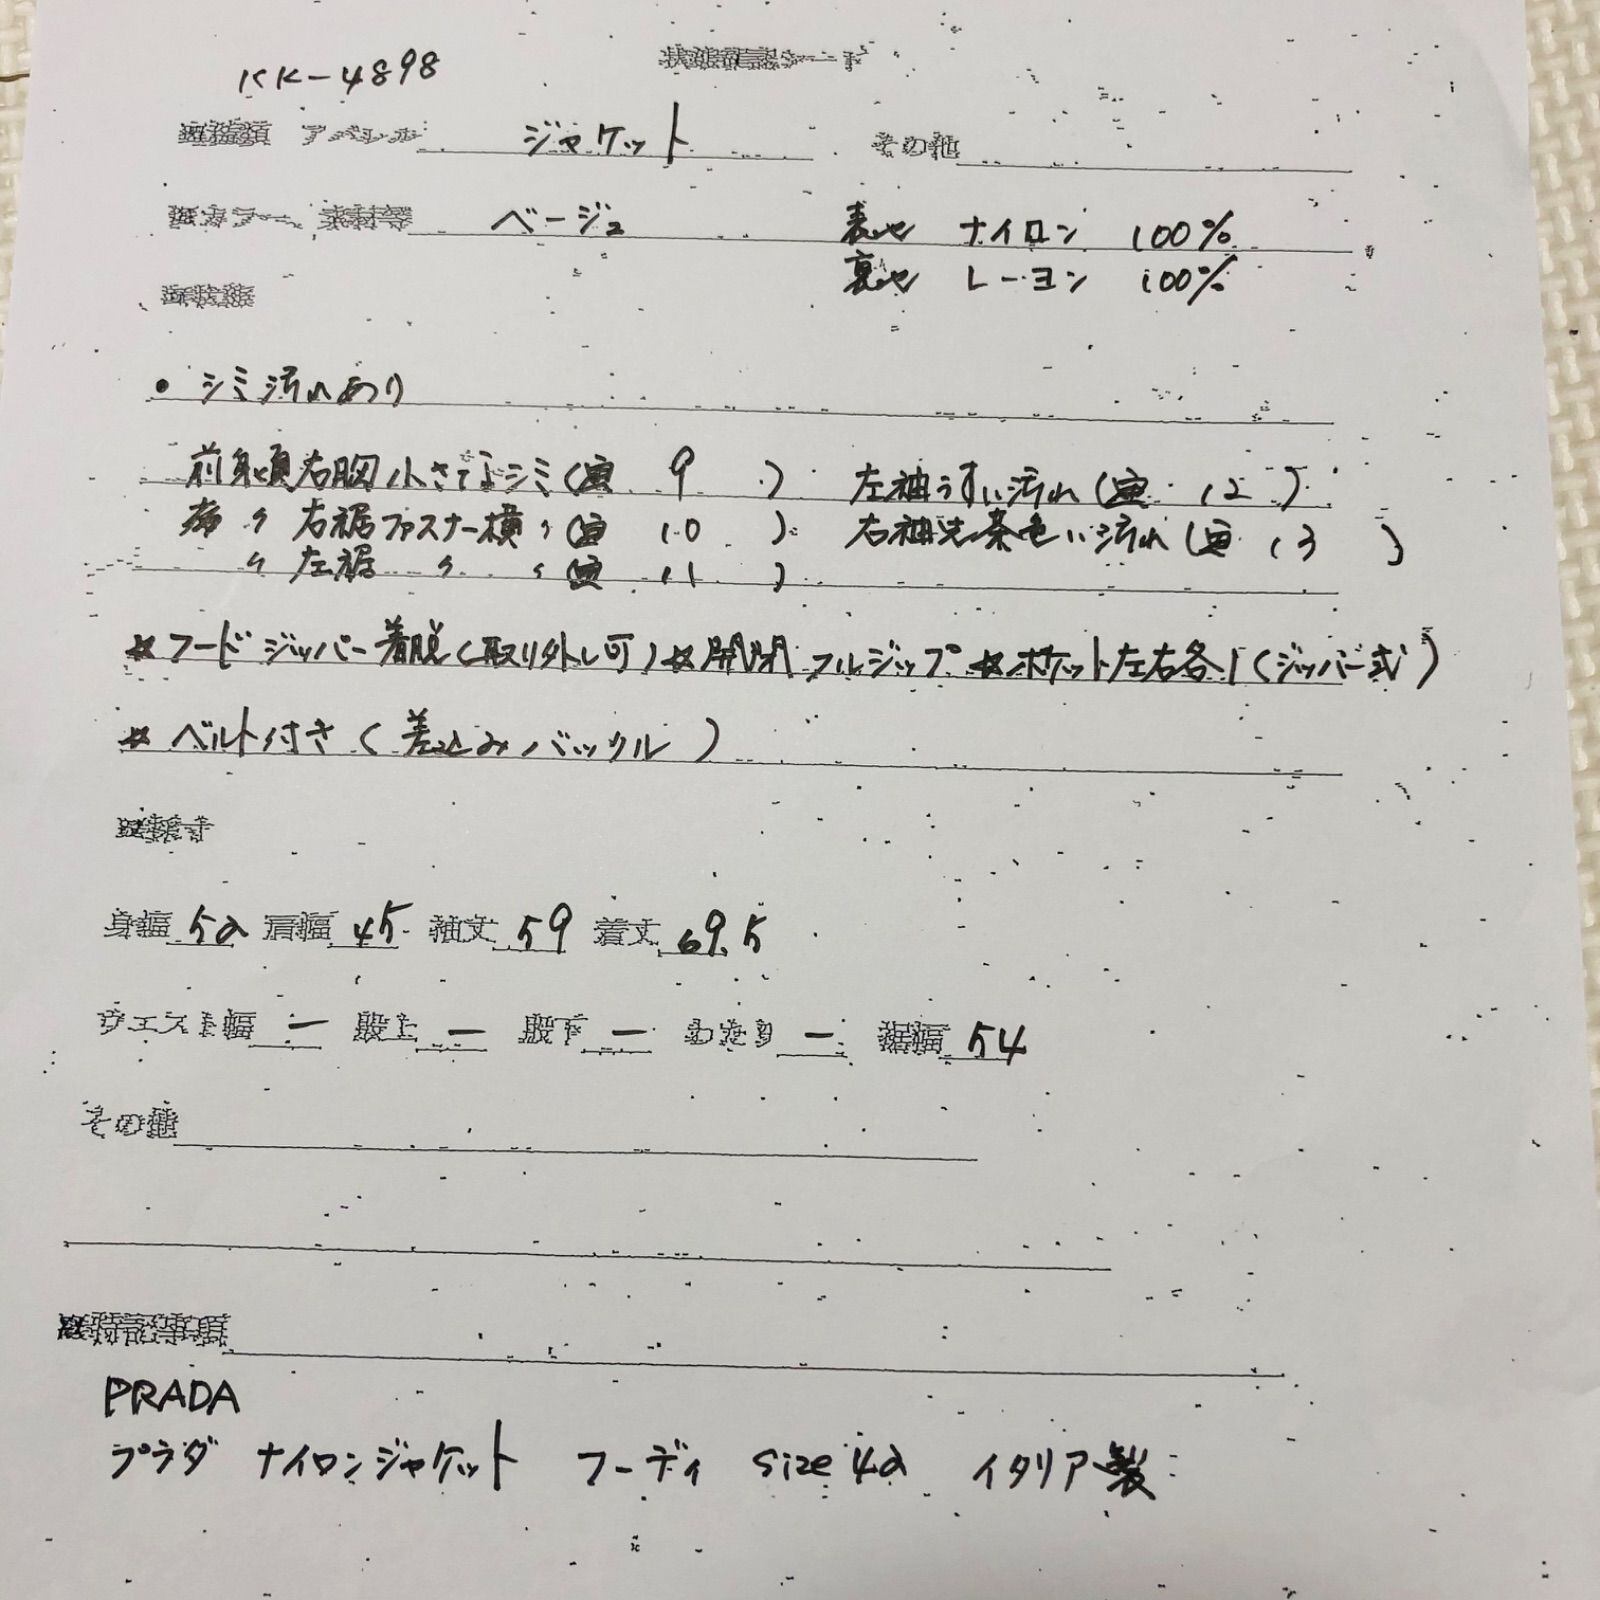 KK-4898
状態確認シート
アパレル ジャケット その他
カラー 素材等 ベージュ 表地 ナイロン 100%
裏地 レーヨン 100%
・シミ汚れあり
前身頃右胸小さなシミ(写 9 ) 左袖うすい汚れ(写 12 )
〃 右裾ファスナー横〃(写 10 ) 右袖先茶色い汚れ(写 13 )
〃 左裾 〃 〃(写 11 )
☆フードジッパー着脱(取り外し可)☆開閉フルジップ ☆ポケット左右各1(ジッパー式)
☆ベルト付き(差込みバックル)
採寸
身幅 52 肩幅 45 袖丈 59 着丈 69.5
ウエスト幅 ー 股上 ー 股下 ー わたり ー 裾幅 54
その他
特記事項
PRADA
プラダ ナイロンジャケット フーディ size 42 イタリア製